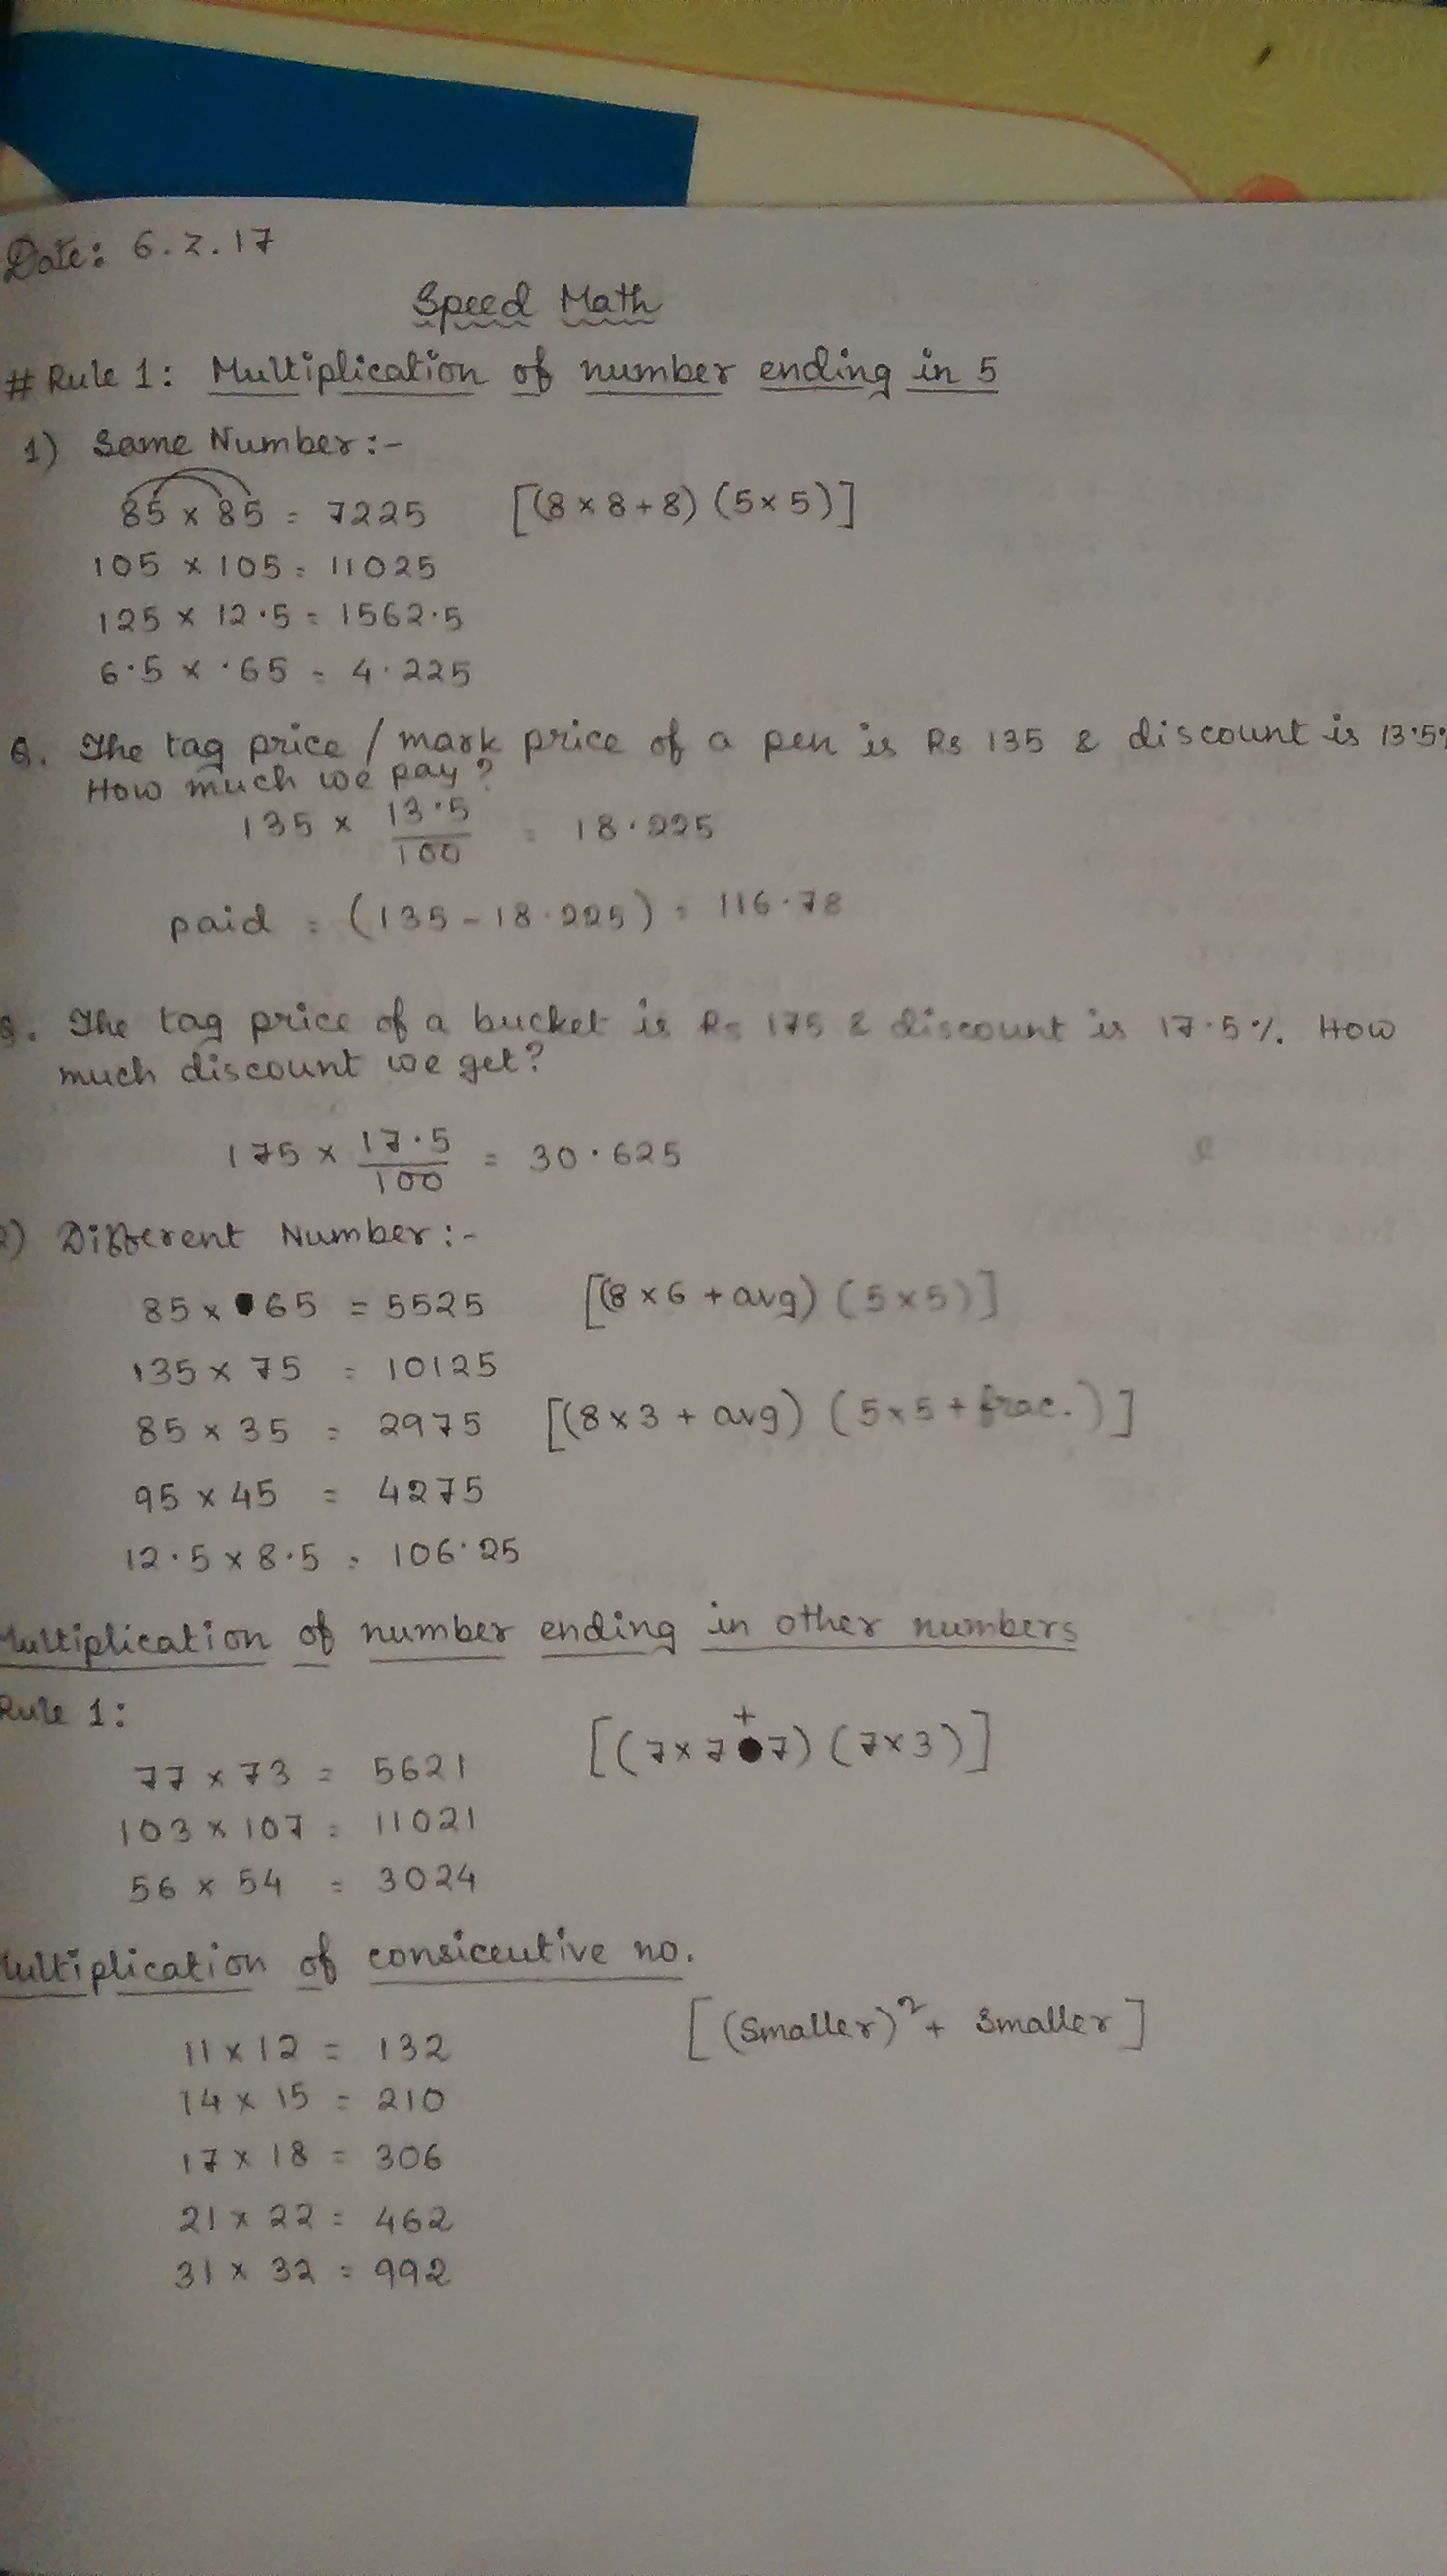 Date: 6.2.17
Speed Math
# Rule 1: Multiplication of number ending in 5
1) Same Number:-
85 × 85 = 7225 [(8 × 8 + 8) (5 × 5)]
105 × 105 = 11025
125 × 12.5 = 1562.5
6.5 × .65 = 4.225
Q. The tag price / mark price of a pen is Rs 135 & discount is 13.5%
How much we pay?
135 × 13.5/100 = 18.225
paid = (135 - 18.225) = 116.78
Q. The tag price of a bucket is Rs 175 & discount is 17.5%. How
much discount we get?
175 × 17.5/100 = 30.625
2) Different Number:-
85 × 65 = 5525 [(8 × 6 + avg) (5 × 5)]
135 × 75 = 10125
85 × 35 = 2975 [(8 × 3 + avg) (5 × 5 + frac.)]
95 × 45 = 4275
12.5 × 8.5 = 106.25
Multiplication of number ending in other numbers
Rule 1:
77 × 73 = 5621 [(7 × 7 + 7) (7 × 3)]
103 × 107 = 11021
56 × 54 = 3024
Multiplication of consicutive no.
11 × 12 = 132 [(Smaller)² + Smaller]
14 × 15 = 210
17 × 18 = 306
21 × 22 = 462
31 × 32 = 992